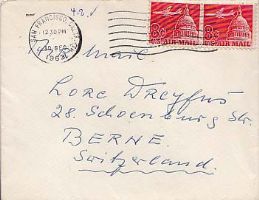 SAN FRANCISCO, CALIF.
12 30 PM
30 DEC
1963
8c
U.S. AIR MAIL
8c
U.S. AIR MAIL
By Air Mail
Lore Dreyfus
28. Schoenburg Str.
BERNE.
Switzerland.